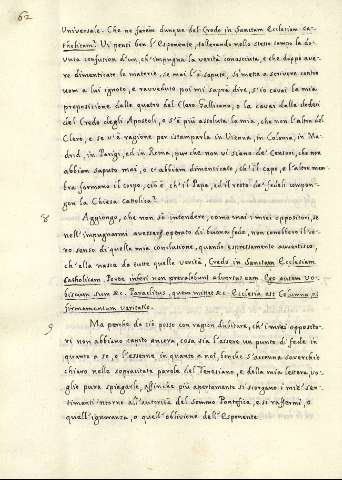 62
Universale. Che ne farem dunque del Credo in Sanctam Ecclesiam ca-
tholicam? Vi pensi ben l'Esponente, tollerando nello stesso tempo la do-
vuta confusion d'un ch'impugna la verità conosciuta, e che doppo ave-
re dimenticate le materie, se mai l'è sapute, si metta a scrivere contro
uom a lui ignoto, e ravveduto poi mi sapra dire, s'io cavai la mia
proposizione dalle quatro del Clero Gallicano, o la cavai dalle dodeci
del Credo degli Apostoli, e s'è più assoluta la mia, che non l'altra del
Clero, e se v'à ragione per istamparla in Vienna, in Colonia, in Ma-
drid, in Parigi, ed in Roma, pur che non vi siano de' Censori, che non
abbiam saputo mai, o ch'abbiam dimenticato, ch'il capo, e l'altre mem-
bra formano il corpo, ciò è ch'il Papa, ed il resto de' fedeli compon-
gon la Chiesa Cattolica?
8 Aggiongo, che non sò intendere, come mai i miei oppositori, se
nell'impugnarmi avessero operato di buona fede, non conoscere il ve-
ro senso di quella mia conclusione, quando espressamente avvertisco
ch'ella nasca da tutte quelle verità, Credo in Sanctam Ecclesiam
Catholicam, Portæ inferi non prevalebunt adversus eam Ego autem vo-
biscum sum &c. Paraclitus, quem mittet &c. Ecclesia est Columna, et
firmamentum veritatis.
9 Ma perche da ciò posso con ragion dubitare, ch'i miei opposito-
ri non abbiano capito ancora, cosa sia l'essere un punto di fede in
quanto a se, e l'esserne in quanto a noi, benche s'accenna soverchio
chiaro nelle sopracitate parole del Teresiano, e della mia lettera, vo-
glio pure spiegarle, affinche più apertamente si scorgano i miei sen-
timenti intorno all'autorità del Sommo Pontefice, e si raffermi, o
quell'ignoranza, o quell'oblivione dell'Esponente